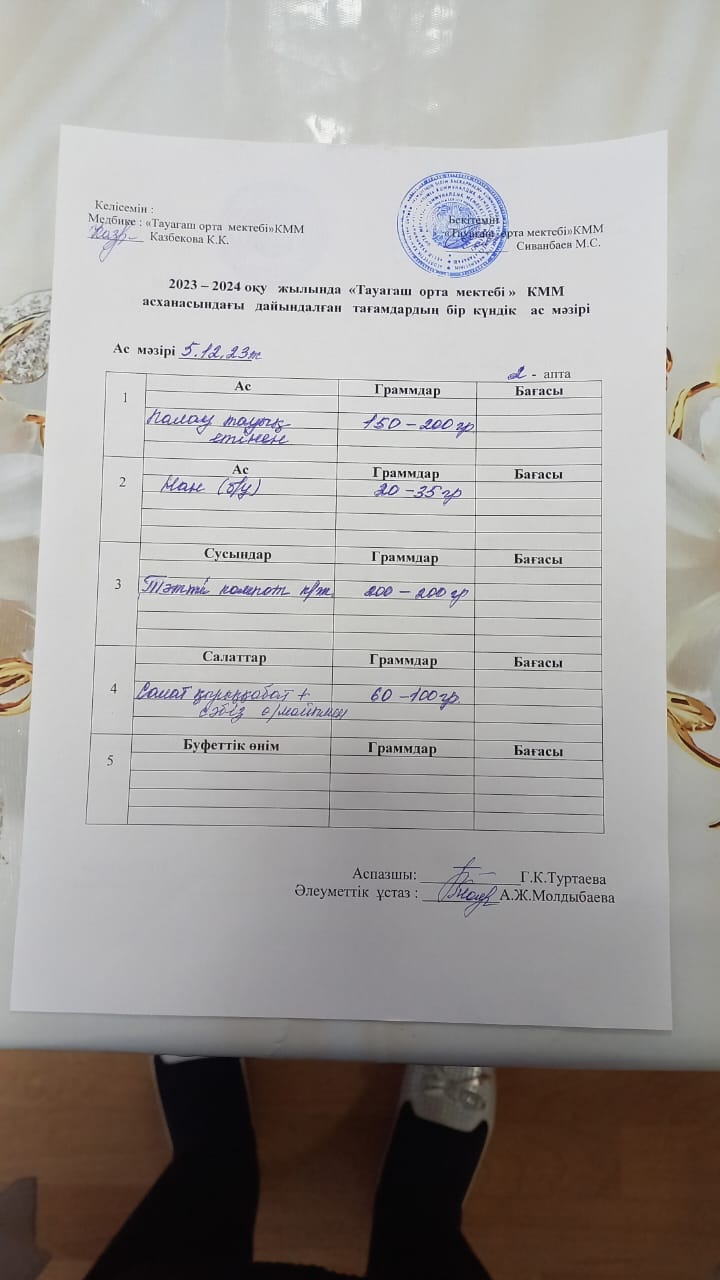 Келісемін :
Медбике : «Тауагаш орта мектебі»КММ
Казбекова К.К.
Бекітемін
«Тауагаш орта мектебі»КММ
Сиванбаев М.С.
2023 – 2024 оқу жылында «Тауагаш орта мектебі » КММ
асханасындағы дайындалған тағамдардың бір күндік ас мәзірі
Ас мәзірі 5.12.23ж
2 - апта
1 Ас Граммдар Бағасы
Палау тауық 150 – 200 гр
етінен
2 Ас Граммдар Бағасы
Нан (б/у) 20 – 35 гр
3 Сусындар Граммдар Бағасы
Тәтті компот к/ж 200 – 200 гр
4 Салаттар Граммдар Бағасы
Салат қырыққабат + 60 – 100 гр.
сәбіз ө/майымен
5 Буфеттік өнім Граммдар Бағасы
Аспазшы: Г.К.Туртаева
Әлеуметтік ұстаз : А.Ж.Молдыбаева